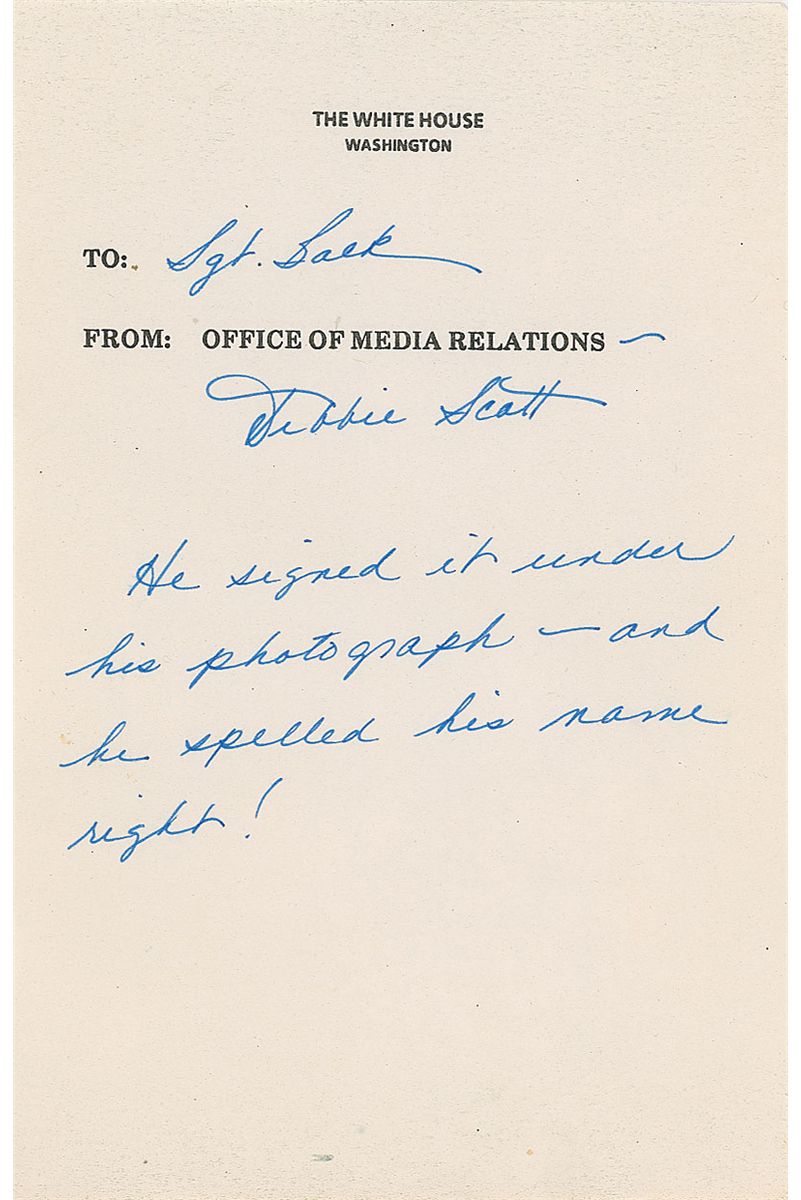 THE WHITE HOUSE
WASHINGTON
TO: Sgt.
FROM: OFFICE OF MEDIA RELATIONS —
Debbie Scott
He signed it under
his photograph — and
he spelled his name
right!